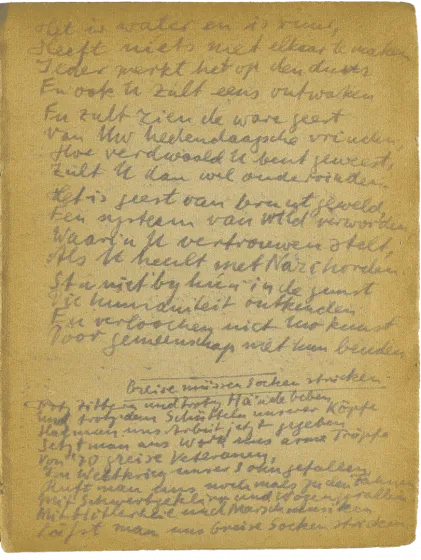 Het is water en is vuur,
Heeft niets met elkaar te maken
Ieder merkt het op den duur
En ook U zult eens ontwaken
En zult zien de ware geest
van Uw hedendaagsche vrinden
Hoe verdwaald U bent geweest,
Zult U dan wel ondervinden.
Het is geest van bruut geweld
Een systeem van wild verworden
Waarin U vertrouwen stelt,
Als U heult met Nazihorden.
Sta niet by hun in de gunst
Die humaniteit ontkenden
En verloochen niet Uw kunst
Door gemeenschap met hun benden
Greise müssen Socken stricken
Trotz Zittern und trotz Hände beben
und trotz dem Schütteln unserer Köpfe
Hat man uns Arbeit jetzt gegeben
Setzt man ans Werk uns arme Tröpfe
Von 70 greise Veteranen,
Im Weltkrieg unser Sohn gefallen
Ruft man uns nochmals zu den Fahnen
Mit und
und Marschmusiken
man uns Greise Socken stricken